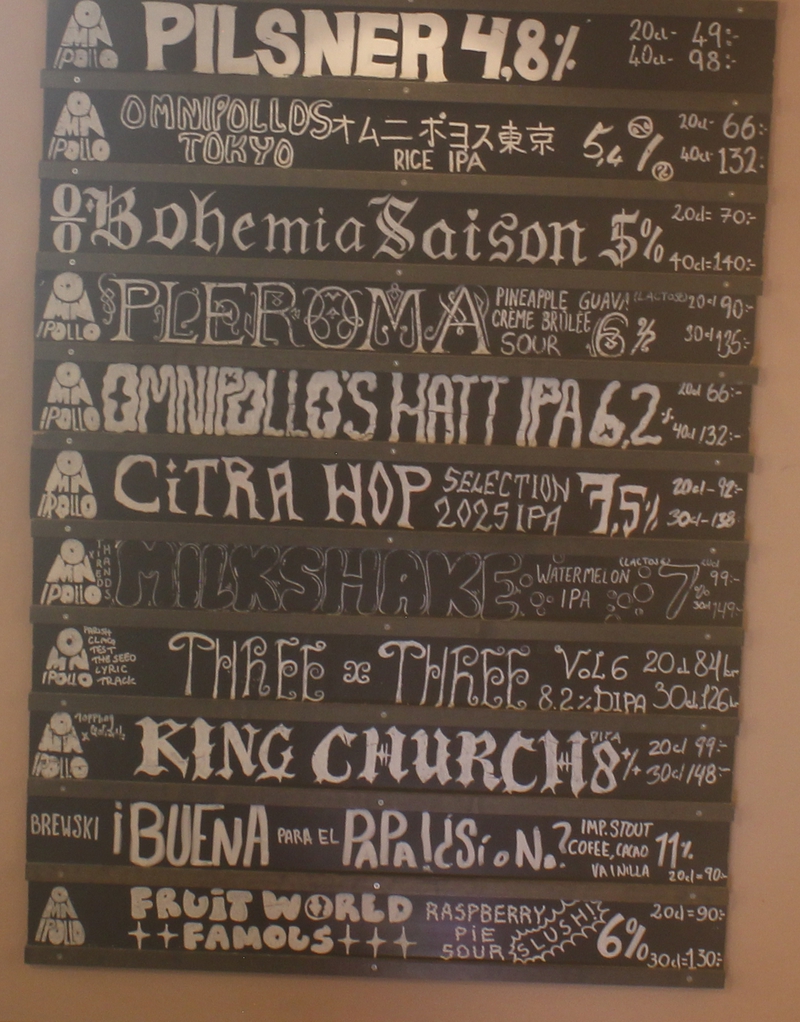 OMNIPOLLO PILSNER 4,8% 20cl- 49:-
40cl- 98:-
OMNIPOLLO OMNIPOLLOS オムニポヨス東京 5,4% 20cl- 66:-
TOKYO RICE IPA 40cl- 132:-
O/O Bohemia Saison 5% 20cl= 70:-
40cl=140:-
OMNIPOLLO PLEROMA PINEAPPLE GUAVA (LACTOSE) 20cl 90:-
CRÈME BRÛLÉE 6%
SOUR 30cl 135:-
OMNIPOLLO OMNIPOLLO'S HATT IPA 6,2 20cl 66:-
40cl/132:-
OMNIPOLLO CiTRA HOP SELECTION 7,5% 20cl-92:-
2025 IPA 30cl-138
OMNIPOLLO MILKSHAKE WATERMELON (LACTOSE) 7% 20cl 99:-
IPA 30cl 149:-
OMNIPOLLO THREE x THREE VOL 6 20cl 84kr
TEST
THE SEED
LYRIC
TRACK
8.2% DIPA 30cl 126kr
OMNIPOLLO KING CHURCH DIPA 8% 20cl 99:-
30cl/148:-
BREWSKI ¡BUENA PARA EL PAPA!¿Si o No.? IMP. STOUT 11%
COFEE, CACAO
VAINILLA 20cl=90:-
OMNIPOLLO FRUiT WORLD RASPBERRY SLUSH! 6% 20cl=90:-
FAMOUS PiE
SOUR 30cl=130:-